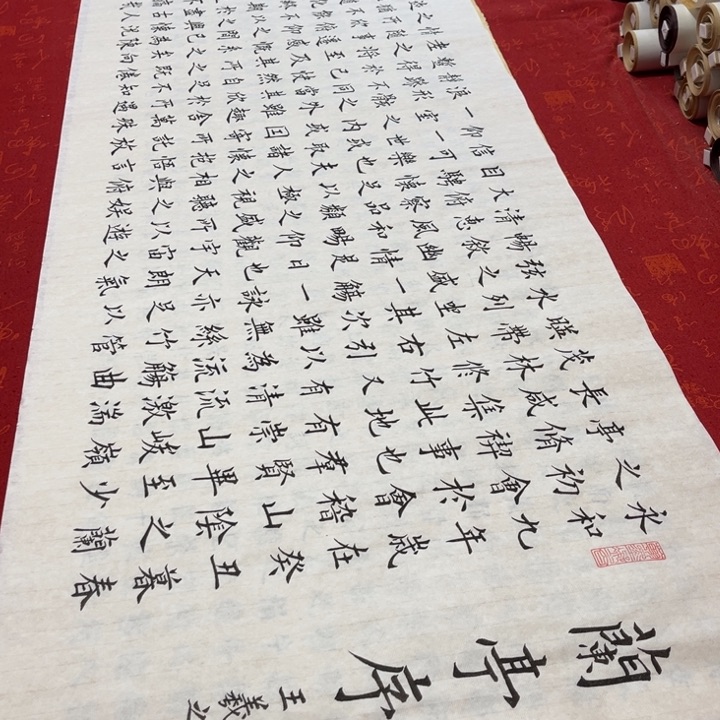 蘭亭序
王羲之
永和九年歲在癸丑暮春
之初會於會稽山陰之蘭
亭脩禊事也羣賢畢至少
長咸集此地有崇山峻嶺
茂林修竹又有清流激湍
暎帶左右引以為流觴曲
水列坐其次雖無絲竹管
弦之盛一觴一詠亦足以
暢敘幽情是日也天朗氣
清惠風和暢仰觀宇宙之
大俯察品類之盛所以遊
目騁懷足以極視聽之娛
信可樂也夫人之相與俯
仰一世或取諸懷抱悟言
一室之內或因寄所託放
浪形骸之外雖趣舍萬殊
靜躁不同當其欣於所遇
得於己快然自足不知
之將至及其所之既倦
情隨事遷感慨係之矣向